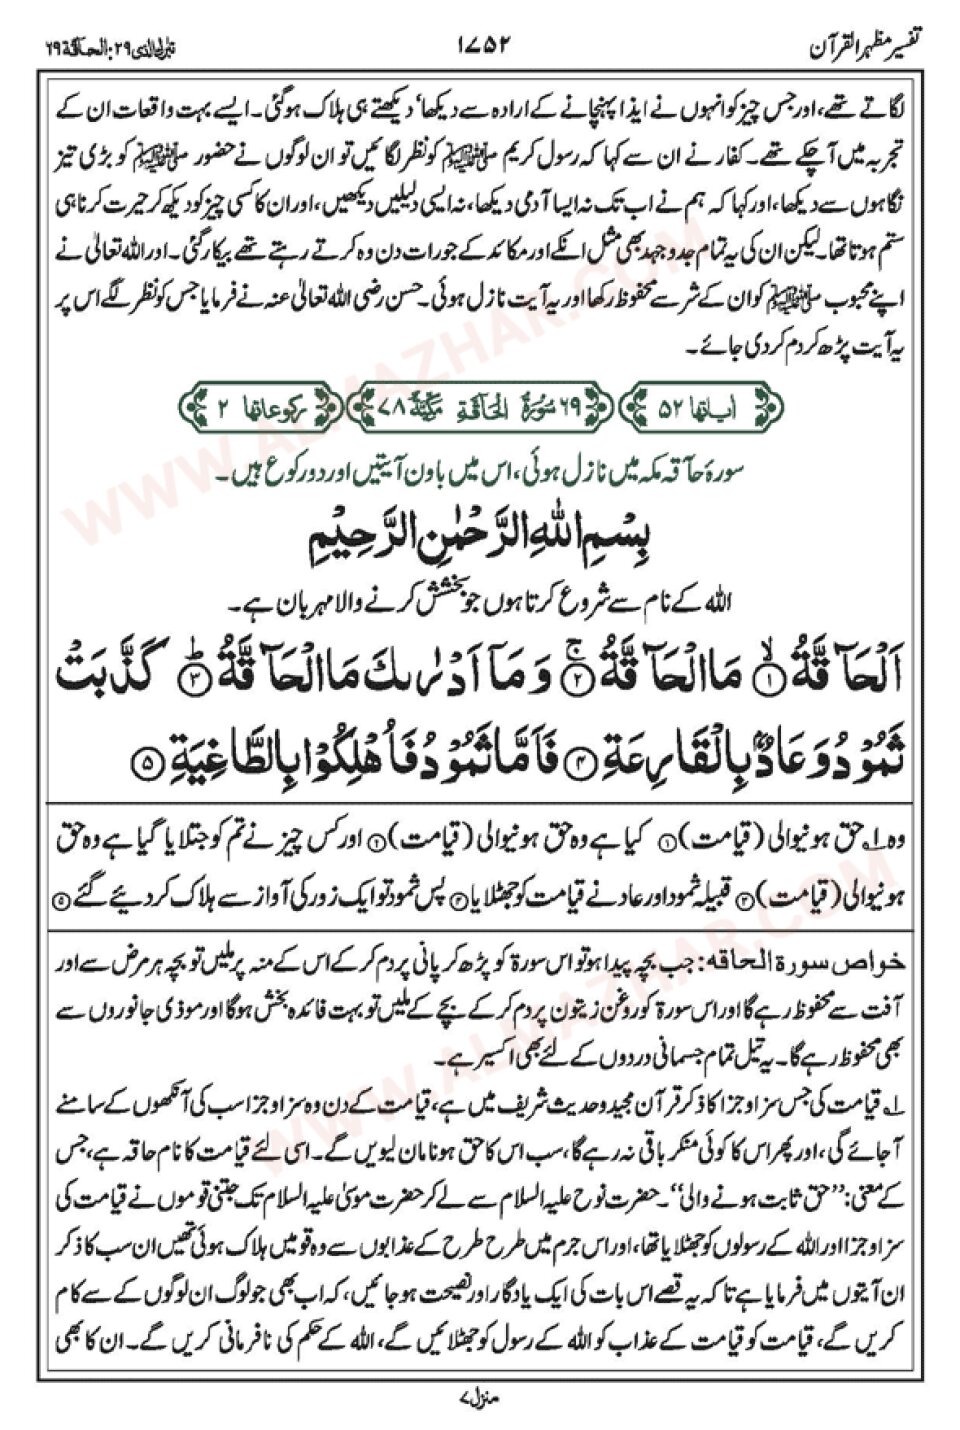 تفسیر مظہر القرآن
۱۷۵۲
تبٰرک الذی ۲۹: الحاقۃ ۶۹
لگاتے تھے، اور جس چیز کو انہوں نے ایذا پہنچانے کے ارادہ سے دیکھا، دیکھتے ہی ہلاک ہوگئی۔ ایسے بہت واقعات ان کے
تجربہ میں آچکے تھے۔ کفار نے ان سے کہا کہ رسول کریم ﷺ کو نظر لگائیں تو ان لوگوں نے حضور ﷺ کو بڑی تیز
نگاہوں سے دیکھا، اور کہا کہ ہم نے اب تک نہ ایسا آدمی دیکھا، نہ ایسی دلیلیں دیکھیں، اور ان کا کسی چیز کو دیکھ کر حیرت کرنا ہی
ستم ہوتا تھا۔ لیکن ان کی یہ تمام جدوجہد بھی مثل انکے اور مکائد کے جو رات دن وہ کرتے رہتے تھے بیکار گئی۔ اور اللہ تعالیٰ نے
اپنے محبوب ﷺ کو ان کے شر سے محفوظ رکھا اور یہ آیت نازل ہوئی۔ حسن رضی اللہ تعالیٰ عنہ نے فرمایا جس کو نظر لگے اس پر
یہ آیت پڑھ کر دم کر دی جائے۔
اٰیاتہا ۵۲
۶۹ سُوْرَۃُ الْحَآقَّۃِ مَکِّیَّۃٌ ۷۸
رکوعاتہا ۲
سورۂ حآقہ مکہ میں نازل ہوئی، اس میں باون آیتیں اور دو رکوع ہیں۔
بِسْمِ اللهِ الرَّحْمٰنِ الرَّحِيْمِ
اللہ کے نام سے شروع کرتا ہوں جو بخشش کرنے والا مہربان ہے۔
اَلْحَآقَّةُ ۙ۱ مَا الْحَآقَّةُ ۚ۲ وَمَآ اَدْرٰىكَ مَا الْحَآقَّةُ ؕ۳ كَذَّبَتْ
ثَمُوْدُ وَعَادٌۢ بِالْقَارِعَةِ ۴ فَاَمَّا ثَمُوْدُ فَاُهْلِكُوْا بِالطَّاغِيَةِ ۵
وہ ۱؎ حق ہونیوالی (قیامت) ۱ کیا ہے وہ حق ہونیوالی (قیامت) ۲ اور کس چیز نے تم کو جتلایا گیا ہے وہ حق
ہونیوالی (قیامت) ۳ قبیلہ ثمود اور عاد نے قیامت کو جھٹلایا ۴ پس ثمود تو ایک زور کی آواز سے ہلاک کر دیئے گئے ۵
خواص سورۃ الحاقہ: جب بچہ پیدا ہو تو اس سورۃ کو پڑھ کر پانی پر دم کر کے اس کے منہ پر ملیں تو بچہ ہر مرض سے اور
آفت سے محفوظ رہے گا اور اس سورۃ کو روغن زیتون پر دم کر کے بچے کے ملیں تو بہت فائدہ بخش ہوگا اور موذی جانوروں سے
بھی محفوظ رہے گا۔ یہ تیل تمام جسمانی دردوں کے لئے بھی اکسیر ہے۔
۱؎ قیامت کی جس سزا و جزا کا ذکر قرآن مجید و حدیث شریف میں ہے، قیامت کے دن وہ سزا و جزا سب کی آنکھوں کے سامنے
آجائے گی، اور پھر اس کا کوئی منکر باقی نہ رہے گا، سب اس کا حق ہونا مان لیویں گے۔ اسی لئے قیامت کا نام حاقہ ہے، جس
کے معنی: ’’حق ثابت ہونے والی‘‘۔ حضرت نوح علیہ السلام سے لے کر حضرت موسیٰ علیہ السلام تک جتنی قوموں نے قیامت کی
سزا و جزا اور اللہ کے رسولوں کو جھٹلایا تھا، اور اس جرم میں طرح طرح کے عذابوں سے وہ قومیں ہلاک ہوئی تھیں ان سب کا ذکر
ان آیتوں میں فرمایا ہے تا کہ یہ قصے اس بات کی ایک یادگار اور نصیحت ہو جائیں، کہ اب بھی جو لوگ ان لوگوں کے سے کام
کریں گے، قیامت کو قیامت کے عذاب کو اللہ کے رسول کو جھٹلائیں گے، اللہ کے حکم کی نافرمانی کریں گے۔ ان کا بھی
منزل ۷
WWW.ALMAZHAR.COM
WWW.ALMAZHAR.COM